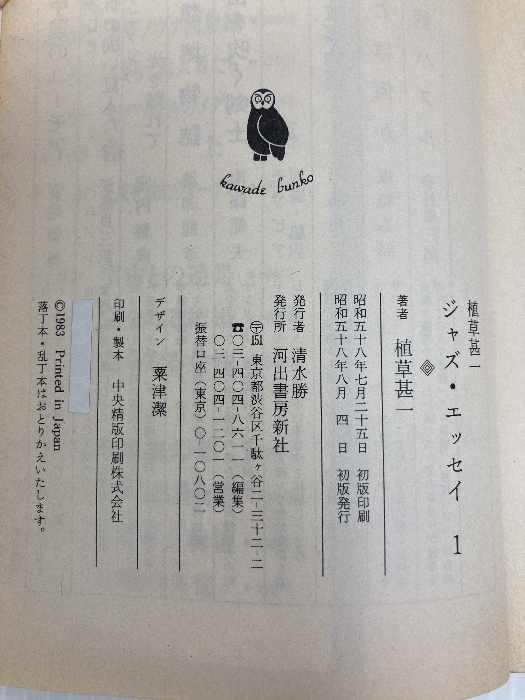 kawade bunko
植草甚一
ジャズ・エッセイ 1
著者 植草甚一
昭和五十八年七月二十五日 初版印刷
昭和五十八年八月 四 日 初版発行
発行者 清水勝
発行所 河出書房新社
〒151 東京都渋谷区千駄ヶ谷二-三十二-二
☎〇三-四〇四-八六一一(編集)
〇三-四〇四-一二〇一(営業)
振替口座(東京)〇-一〇八〇二
デザイン 粟津潔
印刷・製本 中央精版印刷株式会社
©1983 Printed in Japan
落丁本・乱丁本はおとりかえいたします。